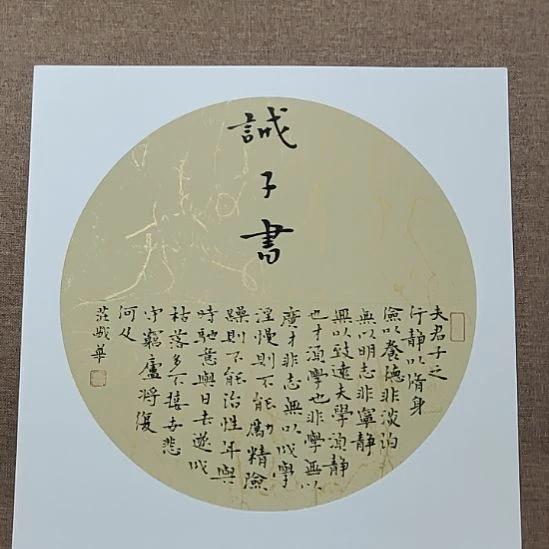 誡子書
夫君子之
行靜以脩身
儉以養德非淡泊
無以明志非寧靜
無以致遠夫學須靜
也才須學也非學無以
廣才非志無以成學
淫慢則不能勵精險
躁則不能治性年與
時馳意與日去遂成
枯落多不接世悲
守窮廬將復
何及
莊華